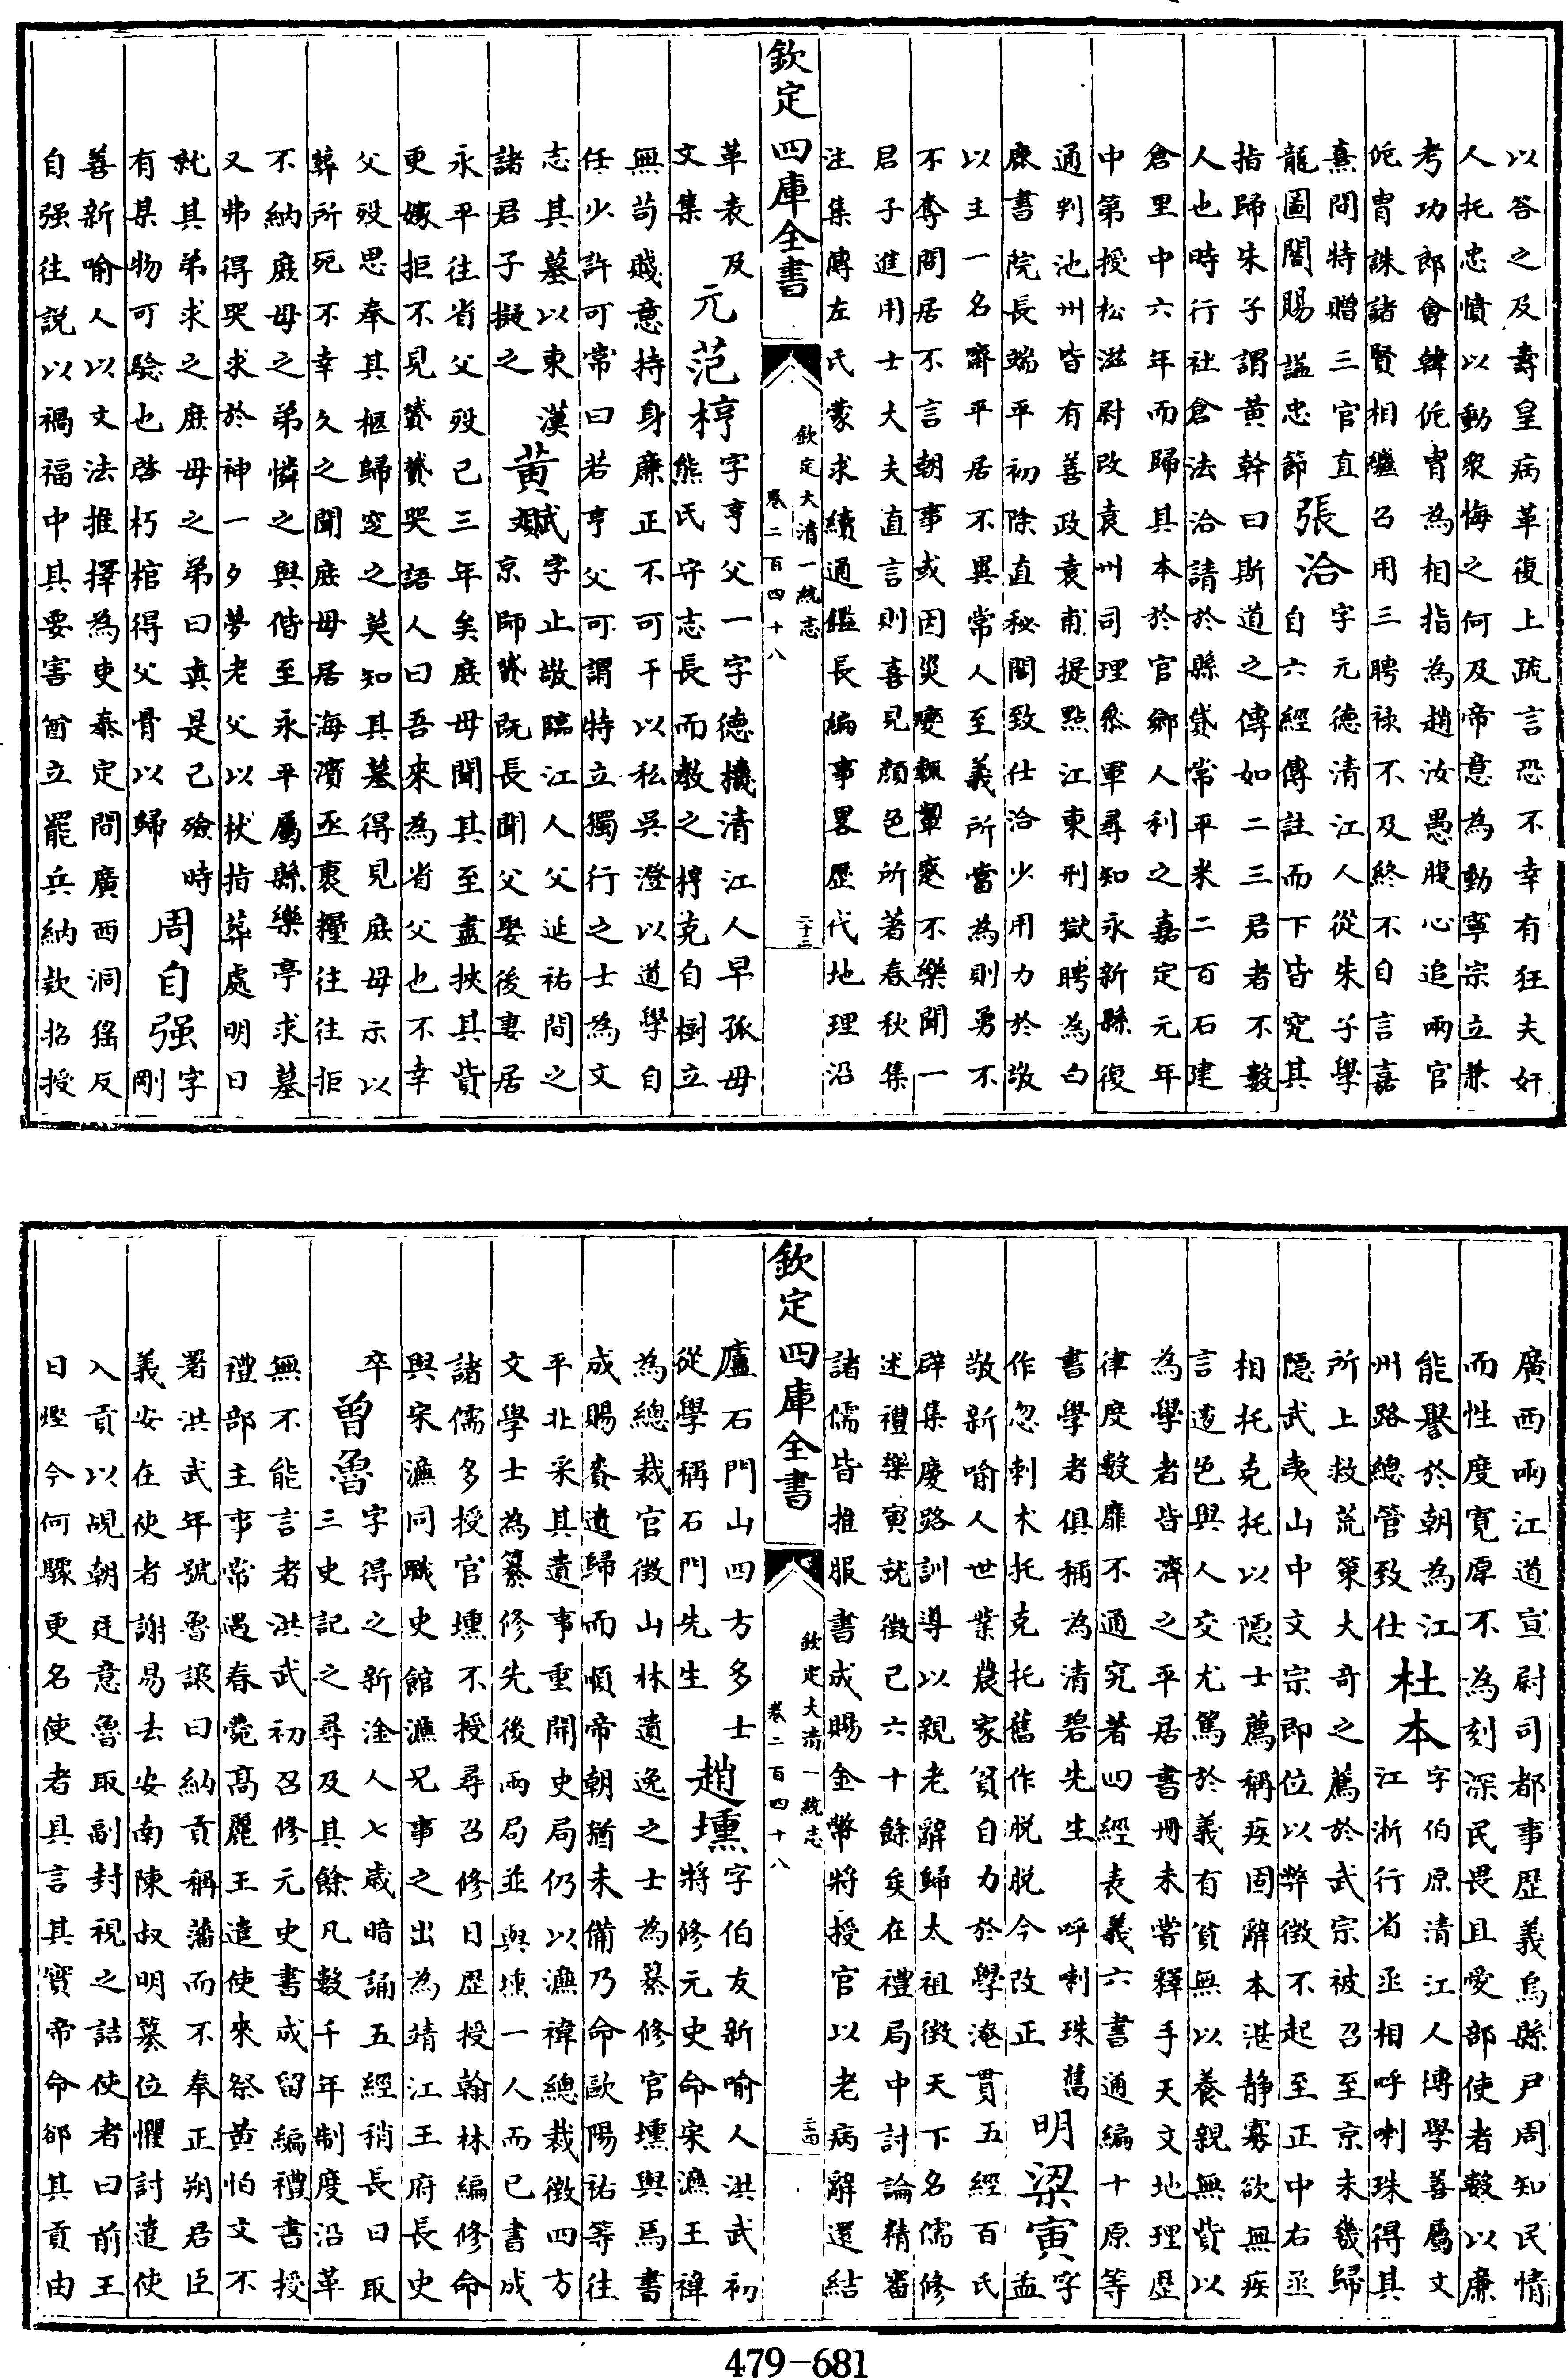 以答之及壽皇病革復上疏言恐不幸有狂夫奸
人托忠憤以動衆悔之何及帝意為動寧宗立兼
考功郎會韓侂胄為相指為趙汝愚腹心追兩官
侂胄誅諸賢相繼召用三聘禄不及終不自言嘉
熹間特贈三官直
龍圖閣賜諡忠節
張洽
字元德清江人從朱子學
自六經傳註而下皆究其
指歸朱子謂黄幹曰斯道之傳如二三君者不數
人也時行社倉法洽請於縣貸常平米二百石建
倉里中六年而歸其本於官鄉人利之嘉定元年
中第授松滋尉改袁州司理參軍尋知永新縣復
通判池州皆有善政袁甫提點江東刑獄聘為白
鹿書院長端平初除直秘閣致仕洽少用力於敬
以主一名齋平居不異常人至義所當為則勇不
不奪閒居不言朝事或因災變輙顰蹙不樂聞一
君子進用士大夫直言則喜見顏色所著春秋集
注集傳左氏蒙求續通鑑長編事畧歷代地理沿
欽定四庫全書
欽定大清一統志
卷二百四十八
二十三
革表及
文集
元范梈
字亨父一字德機清江人早孤母
熊氏守志長而教之梈克自樹立
無苟賤意持身廉正不可干以私吳澄以道學自
任少許可常曰若亨父可謂特立獨行之士為文
志其墓以東漢
諸君子擬之
黄贇
字止敬臨江人父延祐間之
京師贇既長聞父娶後妻居
永平往省父歿已三年矣庶母聞其至盡挾其貲
更嫁拒不見贇贇哭語人曰吾來為省父也不幸
父歿思奉其柩歸窆之莫知其墓得見庶母示以
葬所死不幸久之聞庶母居海濱亟裹糧往往拒
不納庶母之弟憐之與偕至永平屬縣樂亭求墓
又弗得哭求於神一夕夢老父以杖指葬處明日
就其弟求之庶母之弟曰真是已殮時
有某物可驗也啓朽棺得父骨以歸
周自强
字
剛
善新喻人以文法推擇為吏泰定間廣西洞猺反
自强往説以禍福中其要害酋立罷兵納欵招授
廣西兩江道宣尉司都事歷義烏縣尹周知民情
而性度寛厚不為刻深民畏且愛部使者數以廉
能譽於朝為江
州路總管致仕
杜本
字伯原清江人博學善屬文
江浙行省丞相呼喇珠得其
所上救荒策大奇之薦於武宗被召至京未幾歸
隱武夷山中文宗即位以幣徵不起至正中右丞
相托克托以隱士薦稱疾固辭本湛静寡欲無疾
言遽色與人交尤篤於義有貧無以養親無貲以
為學者皆濟之平居書冊未嘗釋手天文地理歷
律度數靡不通究著四經表義六書通編十原等
書學者俱稱為清碧先生呼喇珠舊
作忽剌术托克托舊作脱脱今改正
明梁寅
字
孟
敬新喻人世業農家貧自力於學淹貫五經百氏
辟集慶路訓導以親老辭歸太祖徴天下名儒修
述禮樂寅就徴已六十餘矣在禮局中討論精審
諸儒皆推服書成賜金幣將授官以老病辭還結
欽定四庫全書
欽定大清一統志
卷二百四十八
二十四
廬石門山四方多士
從學稱石門先生
趙壎
字伯友新喻人洪武初
將修元史命宋濂王禕
為總裁官徴山林遺逸之士為纂修官壎與焉書
成賜賚遣歸而順帝朝猶未備乃命歐陽祐等往
平北采其遺事重開史局仍以濂禕總裁徴四方
文學士為纂修先後兩局並與壎一人而已書成
諸儒多授官壎不授尋召修日歷授翰林編修命
與宋濂同職史館濂兄事之出為靖江王府長史
卒
曾魯
字得之新淦人七歲暗誦五經稍長日取
三史記之尋及其餘凡數千年制度沿革
無不能言者洪武初召修元史書成留編禮書授
禮部主事常遇春薨高麗王遣使來祭黄怕文不
署洪武年號魯讓曰納貢稱藩而不奉正朔君臣
義安在使者謝易去安南陳叔明簒位懼討遣使
入貢以覘朝廷意魯取副封視之詰使者曰前王
日熞今何驟更名使者具言其實帝命郤其貢由
479-681